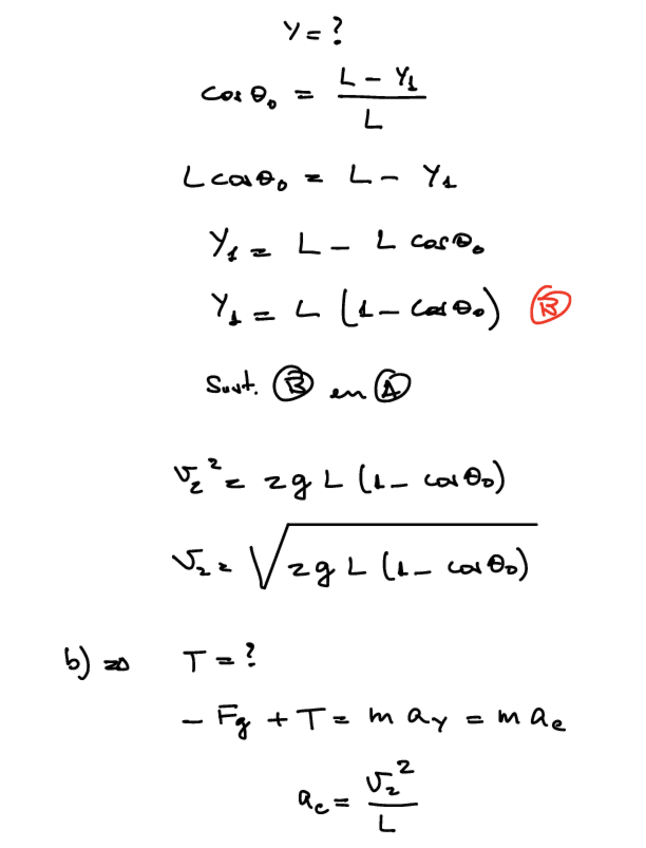 Y = ?
cos θ₀ = (L - Y₁) / L
L cos θ₀ = L - Y₁
Y₁ = L - L cos θ₀
Y₁ = L (1 - cos θ₀) Ⓑ
Sust. Ⓑ en Ⓐ
v₂² = 2gL (1 - cos θ₀)
v₂ = √(2gL (1 - cos θ₀))
b) ⇒ T = ?
- Fg + T = m aY = m ac
ac = v₂² / L